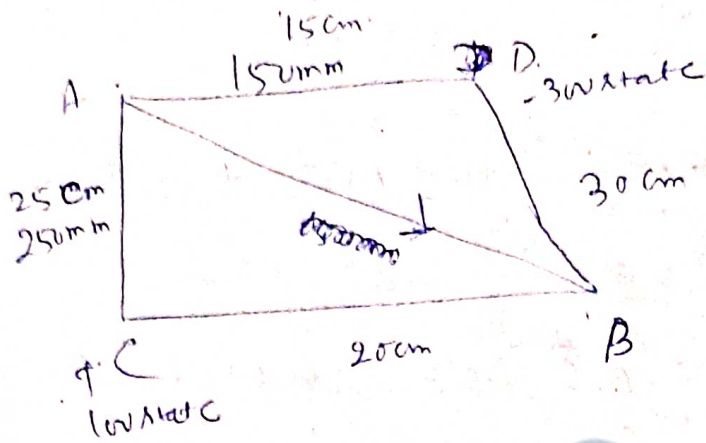 15 cm.
150mm
A
D.
-300 stat C
25 cm
250mm
30 cm
20 cm
B
+ C
100 stat C